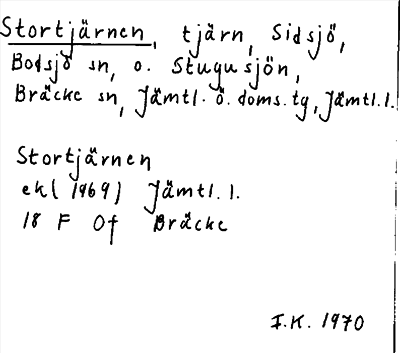 Stortjärnen, tjärn, Sidsjö,
Bodsjö sn, o. Stugusjön,
Bräcke sn, Jämtl. ö. doms. tg, Jämtl. l.
Stortjärnen
ek (1969) Jämtl. l.
18 F Of Bräcke
I.K. 1970